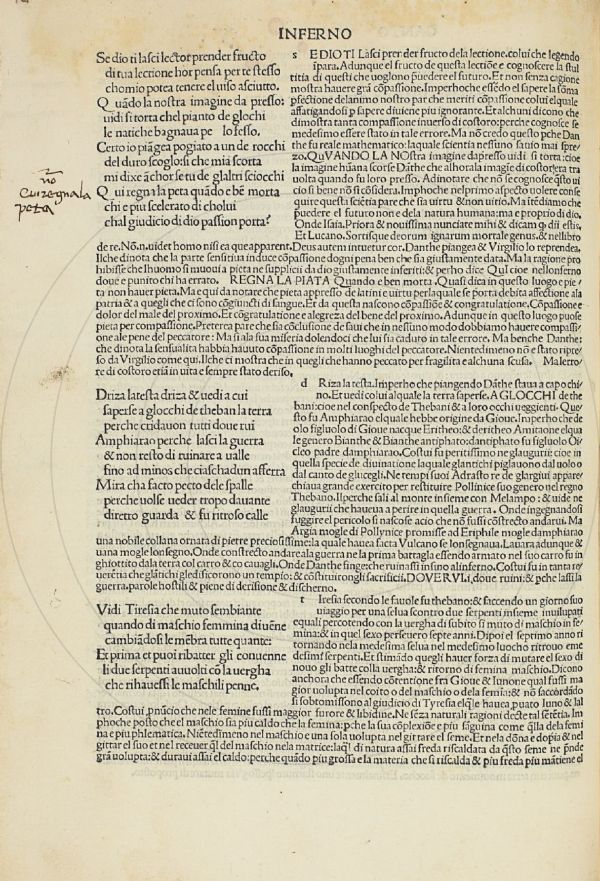 INFERNO
Se dio ti lasci lector prender fructo
di tua lectione hor pensa per te stesso
chomio potea tenere el uiso asciutto.
Quãdo la nostra imagine da presso:
uidi si torta chel pianto de glochi
le natiche bagnaua pe lo fesso.
Certo io piãgea pogiato a un de rocchi
del duro scoglo: si che mia scorta
mi dixe ãchor se tu de glaltri sciocchi
Qui regna la peta quãdo e bẽ morta
chi e piu scelerato di cholui
chal giudicio di dio passion porta?
no
peta
s E DIO TI Lasci prender fructo dela lectione. colui che legendo
ipara. Adunque el fructo de questa lectiõe e cognoscere la stul
titia di questi che uoglono p̃uedere el futuro. Et non senza cagione
mostra hauere grã cõpassione. Imperhoche essẽdo el sapere la sõma
pfectione delanimo nostro par che meriti cõpassione colui elquale
affatigandosi p sapere diuiene piu ignorante. Et alchuni dicono che
dimostra tanta compassione inuerso di costoro: perche cognosce se
medesimo essere stato in tale errore. Ma nõ credo questo pche Dan
the fu reale mathematico: laquale scientia nessuno sauio mai spre
zo. QVVANDO LA NOstra imagine dapresso uidi si torta: cioe
la imagine hũana scorse Dãthe che alhora la imagie di costor era tra
uolta quando fu loro presso. Adinotare che nõ cognosce q̃sto ui
cio si bene nõ si cõsidera. Imphoche nelprimo aspecto uolere conse
guire questa sciẽtia pare che sia uirtu & non uitio. Ma itẽdiamo che
p̃uedere el futuro non e dela natura humana: ma e proprio di dio.
Onde Isaia. Priora & nouissima nunciate mihi & dicam q̃ dii estis.
Et Lucano. Sortisque deorum ignarum mortale genus. & nellibro
de re. Nõ. n. uidet homo nisi ea que apparent. Deus autem intuetur cor. Danthe piangea & Virgilio lo reprendea.
Ilche dinota che la parte sensitiua induce cõpassione dogni pena ben che sia giustamente data. Ma la ragione pro
hibisse che lhuomo si muoui a pieta ne supplicii da dio giustamente inferiti: & perho dice Qui cioe nellonferno
doue e punito chi ha errato. REGNA LA PIATA Quando e ben morta. Quasi dica in questo luogo e pie/
ta non hauer pieta. Ma e qui da notare che pieta appresso de latini e uirtu perlaquale se porta debita affectiõe ala
patria & a quegli che ci sono cõgiunti di sangue. Et da questa nascono cõpassiõe & congratulatione. Cõpassione e
dolor del male del proximo. Et cõgratulatione e alegreza del bene del proximo. Adunque in questo luogo puose
pieta per compassione. Preterea pare che sia cõclusione de saui che in nessuno modo dobbiamo hauere compassi/
one ale pene del peccatore: Ma si ala sua miseria dolendoci che lui sia caduto in tale errore. Ma benche Danthe:
che dinota la sensualita habbia hauuto cõpassione in molti luoghi del peccatore. Nientedimeno nõ e stato ripre/
so da Virgilio come qui. Ilche ci mostra che in quegli che hanno peccato per fragilita e alchuna scusa. Malerro/
re di costoro etiã in uita e sempre stato deriso.
Driza latesta driza & uedi a cui
saperse a glocchi de theban la terra
perche cridauon tutti doue rui
Amphiarao perche lasci la guerra
& non resto di ruinare a ualle
fino ad minos che ciaschadun afferra
Mira cha facto pecto dele spalle
perche uolse ueder tropo dauante
diretro guarda & fu ritroso calle
d Riza la testa. Imperho che piangendo Dãthe staua a capo chi/
no. Et uedi colui al quale la terra saperse. A GLOCCHI de the
bani: cioe nel conspecto de Thebani & a loro occhi ueggienti. Que
sto fu Amphiarao elquale hebbe origine da Gioue. Imperhoche de
olo figluolo di Gioue nacque Eritheo: & deritheo Amitaone elqua
le genero Bianthe & Bianthe antiphato: dantiphato fu figluolo Oi
cleo padre damphiarao. Costui fu peritissimo ne glaugurii: cioe in
quella specie de diuinatione laquale glantichi piglauono dal uolo o
dal canto de gluccegli. Ne tempi suoi Adrasto re de glargiui appare
chiaua grande exercito per restituire Pollinice suo genero nel regno
Thebano. Ilperche sali al monte insieme con Melampo: & uide ne
glaugurii che haueua a perire in quella guerra. Onde ingegnandosi
fuggire el pericolo si nascose acio che nõ fussi cõstrecto andarui. Ma
Argia mogle di Pollynice promisse ad Eriphile mogle damphiarao
una nobile collana ornata di pietre preciosissime: la quale hauea facta Vulcano se lonsegnaua. Lauara adunque &
uana mogle lonsegno. Onde constrecto andare ala guerra ne la prima battagla essendo armato nel suo carro fu in
ghiottito dala terra col carro & co cauagli. Onde Danthe finge: che ruinassi insino alinferno. Costui fu in tanta re/
uerẽtia che glãtichi gledificorono un tempio: & cõstituirongli sacrificii. DOVE RVI. i. doue ruini: & pche lassi la
guerra. parole hostili & piene di derisione & discherno.
Vidi Tiresia che muto sembiante
quando di maschio femmina diuẽne
cambiãdosi le mẽbra tutte quante:
Et prima et puoi ribatter gli conuenne
li due serpenti auuolti cõ la uergha
che rihauessi le maschili penne.
t Iresia secondo le fauole fu thebano: & faccendo un giorno suo
uiaggio per una selua scontro due serpenti insieme inuiluppati
equali percotendo con la uergha di subito si muto di maschio in fe/
mina: & in quel sexo perseuero septe anni. Dipoi el septimo anno ri
tornando nela medesima selua nel medesimo luocho ritrouo eme
desimi serpenti. Et stimãdo quegli hauer forza di mutare el sexo di
nouo gli batte colla uergha: & ritorno di femina maschio. Dicono
anchora che essendo cõtentione fra Gioue & Iunone qual fussi ma
gior uolupta nel coito o del maschio o dela femĩa: & nõ saccordãdo
si sobtomissono al giudicio di Tyresia elq̃le hauea, puato luno & lal
tro. Costui, p̃nũcio che nele femine fussi maggior furore & libidine. Ne sẽza naturali ragioni decte tal sẽtẽtia. Im
phoche posto che el maschio sia piu caldo che la femina: p che la sua cõplexiõe e piu sãguina come q̃lla dela femi
na e piu phlematica. Niẽtedimeno nel maschio e una sola uolupta nel gittare el seme. Et nela dõna e dopia & nel
gittar el suo et nel receuer q̃l del maschio nela matrice: laq̃l di natura assai freda riscaldata da q̃sto seme ne p̃nde
grã uolupta: & duraui assai el caldo: perche quãdo piu grossa e la materia che si riscalda & piu freda piu mãtiene el